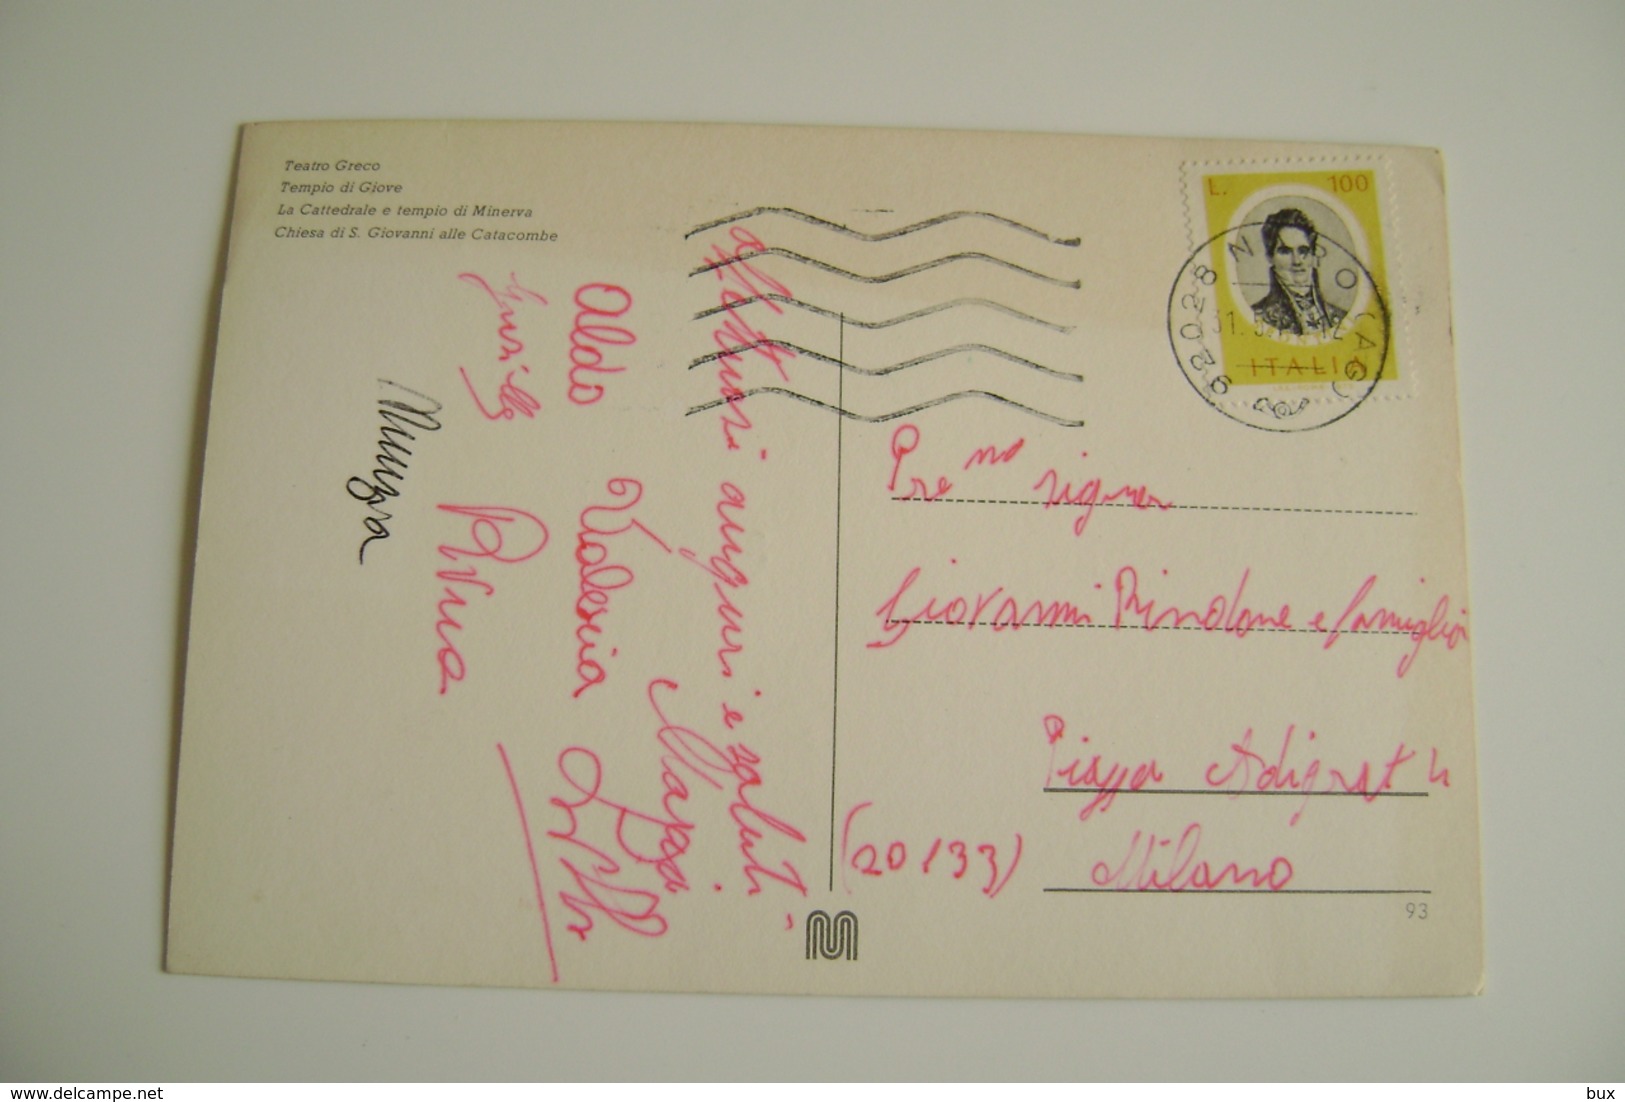 Teatro Greco
Tempio di Giove
La Cattedrale e tempio di Minerva
Chiesa di S. Giovanni alle Catacombe
L. 100
ITALIA
92028 N RO (AG)
31.
Affettuosi auguri e saluti
Aldo Valeria Marisa
Pivua
Pre mo signor
Giovanni Rindone e famiglia
Piazza Adigrat 4
(20133) Milano
93
delcampe.net
bux